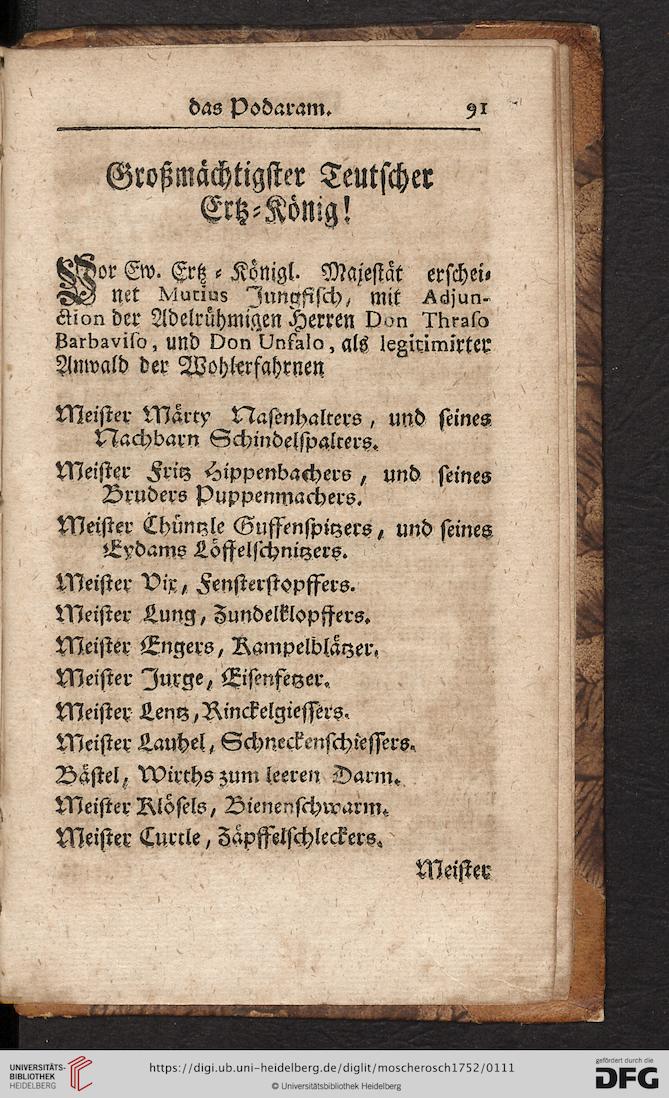 das Podaram. 91
Großmächtigster Teutscher
Ertz-König!
Vor Ew. Ertz-Königl. Majestät erschei-
net Mutius Jungfisch, mit Adjun-
ction der Adelrühmigen Herren Don Thraso
Barbaviso, und Don Unfalo, als legitimirter
Anwald der Wohlerfahrnen
Meister Märty Nasenhalters, und seines
Nachbarn Schindelspalters.
Meister Fritz Hippenbachers, und seines
Bruders Puppenmachers.
Meister Chüntzle Guffenspitzers, und seines
Eydams Löffelschnitzers.
Meister Vix, Fensterstopffers.
Meister Lung, Zundelklopffers.
Meister Engers, Kampelblätzer.
Meister Jurge, Eisenfetzer.
Meister Lentz, Rinckelgiessers.
Meister Lauhel, Schneckenschiessers.
Bästel, Wirths zum leeren Darm.
Meister Klösels, Bienenschwarm.
Meister Curtle, Zäpffelschleckers.
Meister
UNIVERSITÄTS-
BIBLIOTHEK
HEIDELBERG
https://digi.ub.uni-heidelberg.de/diglit/moscherosch1752/0111
© Universitätsbibliothek Heidelberg
gefördert durch die
DFG